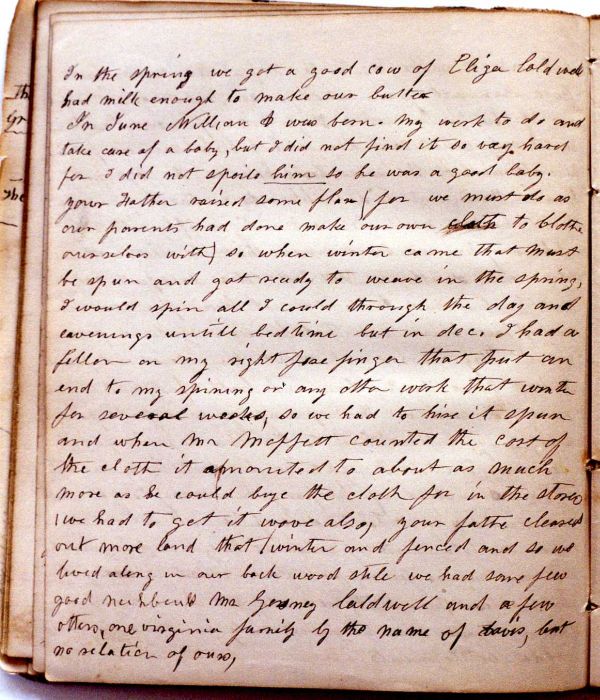 In the spring we got a good cow of Eliza Caldwell
had milk enough to make our butter
In June William was born. my work to do and
take care of a baby, but I did not find it so very hard
for I did not spoile him so he was a good baby.
your Father raised some flax (for we must do as
our parents had done make our own cloth to clothe
ourselves with) so when winter came that must
be spun and got ready to weave in the spring,
I would spin all I could through the day and
eavenings untill bedtime but in dec. I had a
fellon on my right fore finger that put an
end to my spining or any other work that winter
for several weeks, so we had to hire it spun
and when Mr Moffett counted the cost of
the cloth it amounted to about as much
more as he could buye the cloth for in the stores
(we had to get it wove also, your father cleared
out more land that winter and fenced and so we
lived along in our back wood stile we had some few
good neighbours Mr Caldwell and a few
others, one virginia family by the name of Davis, but
no relation of ours,